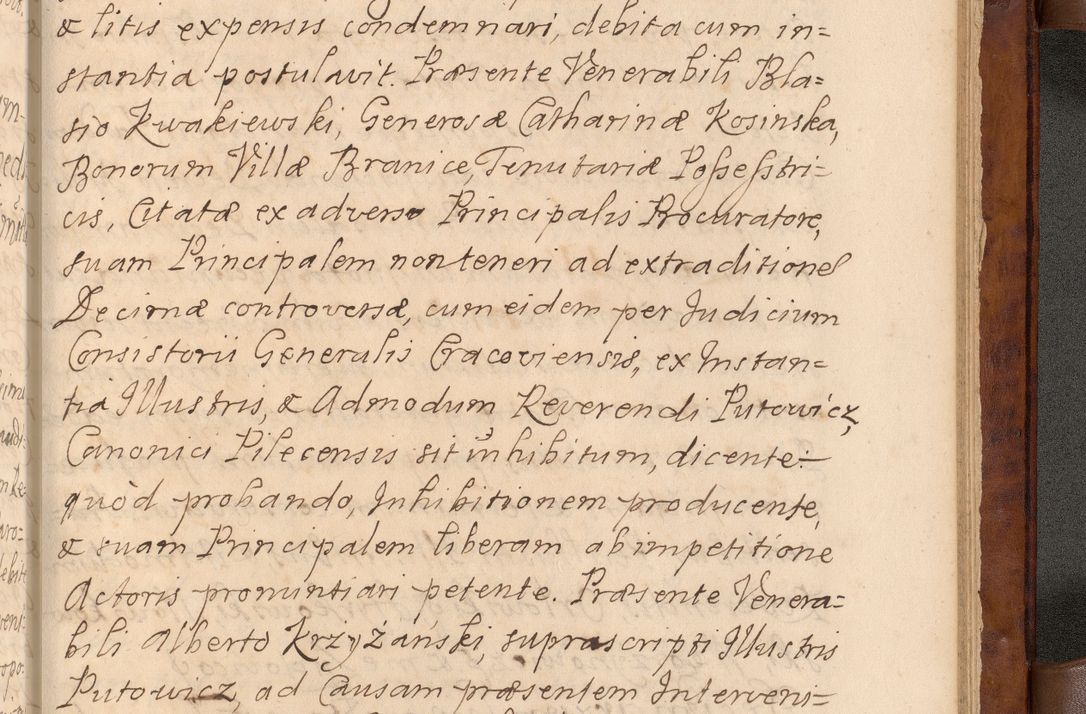 & litis expensis condemnari, debita cum in=
stantia postulavit. Præsente Venerabili Bla=
sio Kwakiewski, Generosæ Catharinæ Kosinska,
Bonorum Villæ Branice, Tenutariæ Poſseſstri=
cis, Citatæ ex adverso Principalis Procuratore,
suam Principalem non teneri ad extraditionē
Decimæ controversæ, cum eidem per Judicium
Consistorii Generalis Cracoviensis, ex Instan=
tia Illustris, & Admodum Reverendi Putowicz,
Canonici Pilecensis sit inhibitum, dicente:
quòd probando, Inhibitionem producente,
& suam Principalem liberam ab impetitione
Actoris pronuntiari petente. Præsente Venera=
bili Alberto Krzyżański, suprascripti Illustris
Putowicz, ad Causam præsentem Interveni=